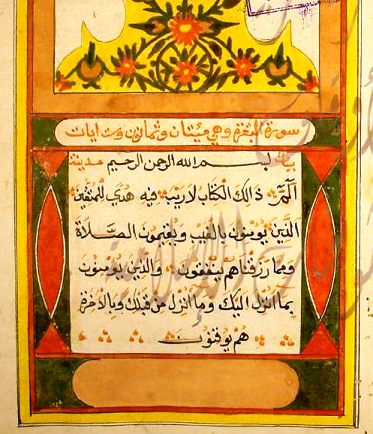 سورة البقرة وهي ميتان وثمانون وست ايات
بسم الله الرحمن الرحيم مدينة
الم ذالك الكتاب لاريب فيه هدي للمتقين
الذين يومنون بالغيب ويقيمون الصلاة
ومما رزقناهم ينفقون والذين يومنون
بما انزل اليك وما انزل من قبلك وبالاخرة
هم يوقنون